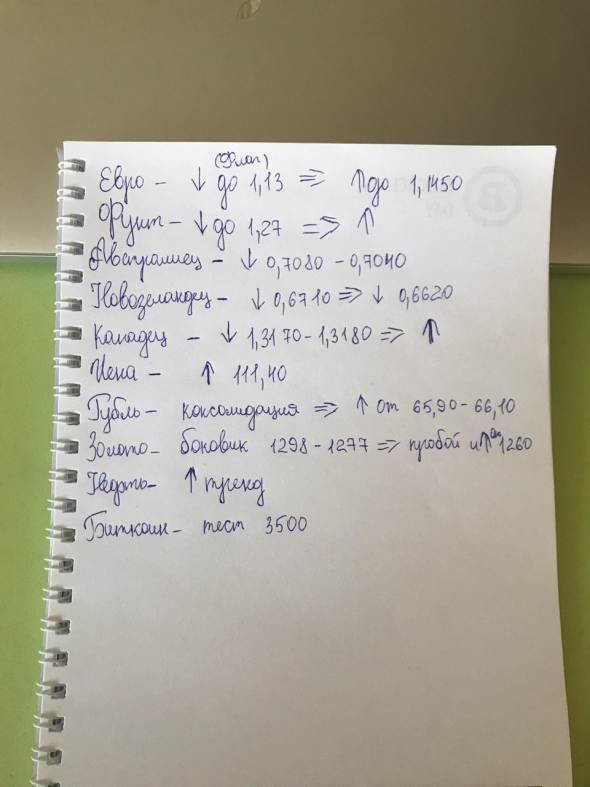 (Флаг)
Евро – ↓ до 1,13 => ↑ до 1,1450
Фунт – ↓ до 1,27 => ↑
Австралиец – ↓ 0,7080 – 0,7040
Новозеландец – ↓ 0,6710 => ↓ 0,6620
Канадец – ↓ 1,3170 – 1,3180 => ↑
Иена – ↑ 111,40
Рубль – консолидация => ↑ от 65,90 – 66,10
Золото – боковик 1298 – 1277 => пробой и ↑ 1260
Нефть – ↑ тренд
Биткоин – тест 3500